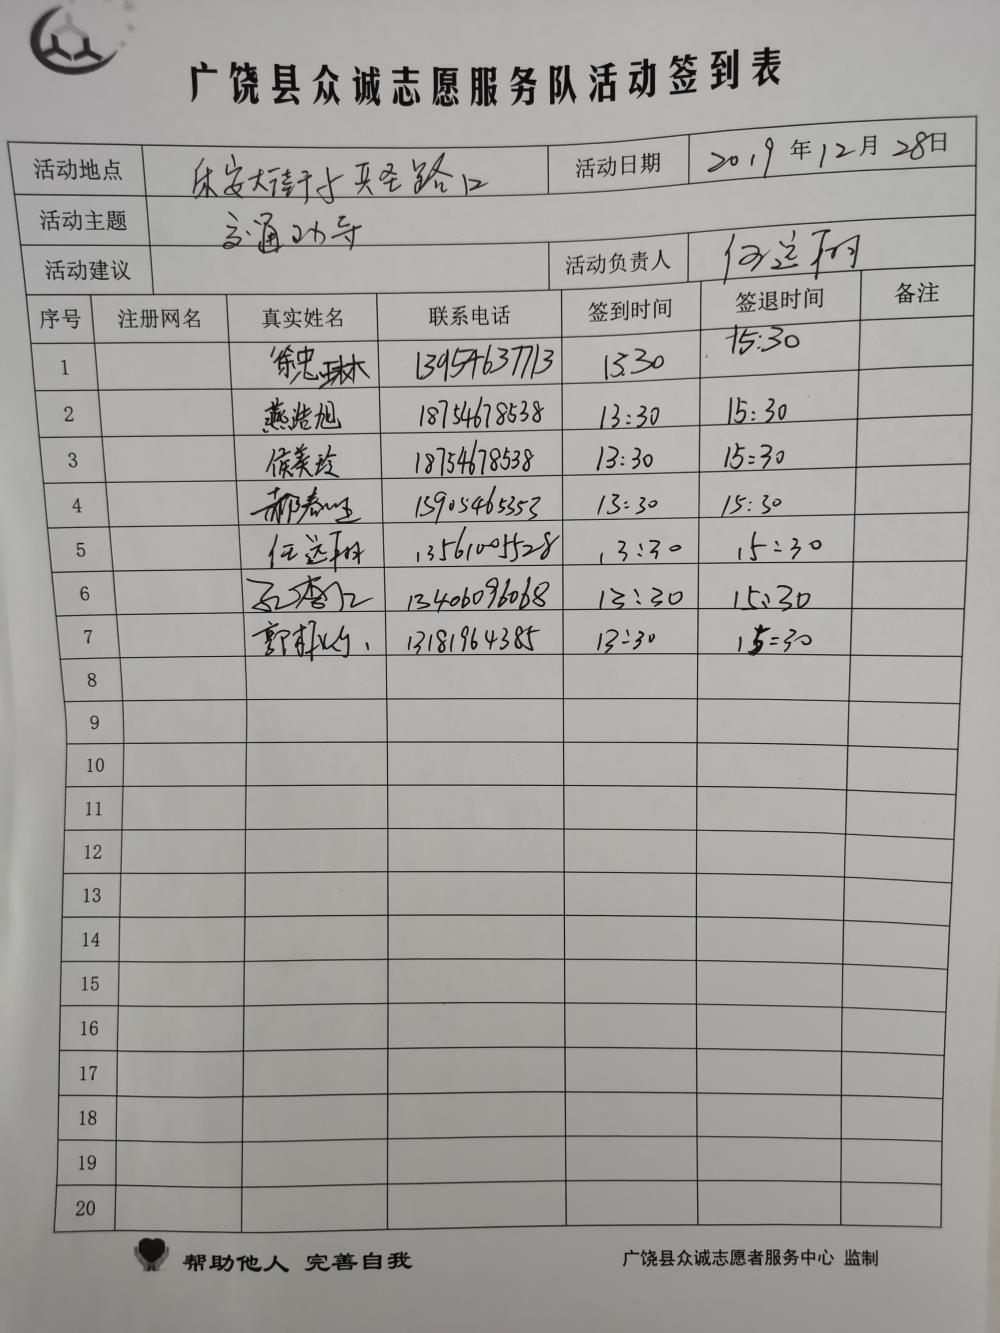 广饶县众诚志愿服务队活动签到表
活动地点 乐安大街与兵圣路口 活动日期 2019年12月28日
活动主题 交通劝导
活动建议 活动负责人 任运翔
序号 注册网名 真实姓名 联系电话 签到时间 签退时间 备注
1 徐忠琳 13954637713 13:30 15:30
2 燕浩旭 18754678538 13:30 15:30
3 侯美玲 18754678538 13:30 15:30
4 郝春 15905465353 13:30 15:30
5 任运翔 13561005528 13:30 15:30
6 13406096068 13:30 15:30
7 郭 13181964385 13:30 15:30
8
9
10
11
12
13
14
15
16
17
18
19
20
帮助他人 完善自我 广饶县众诚志愿者服务中心 监制